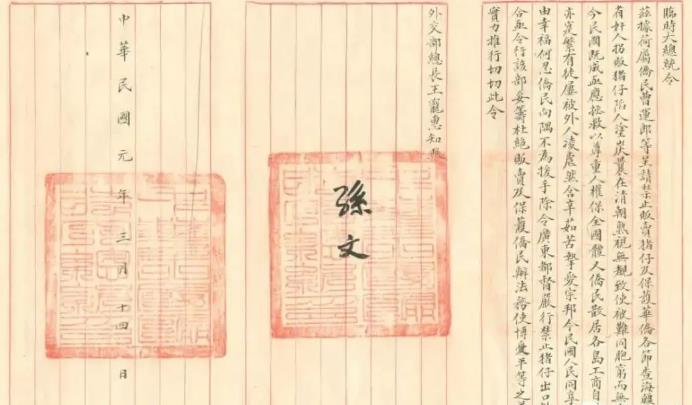 臨時大總統令
茲據荷屬僑民曹運郎等呈請禁止販賣猪仔及保護華僑各節查海疆
有奸人拐販猪仔陷人塗炭曩在清朝熟視無覩致使被難同胞窮而無
今民國既成亟應拯救以尊重人權保全國體又僑民散居各島工商自
亦寔繁有徒屢被外人凌虐然含辛茹苦摯愛宗邦今民國人民同享
由幸福何忍僑民向隅不為援手除令廣東都督嚴行禁止猪仔出口外
合亟令行該部妥籌杜絕販賣及保護僑民辦法務使博愛平等之義
實力推行切切此令
外交部總長王寵惠知照
孫文
中華民國元年三月十四日